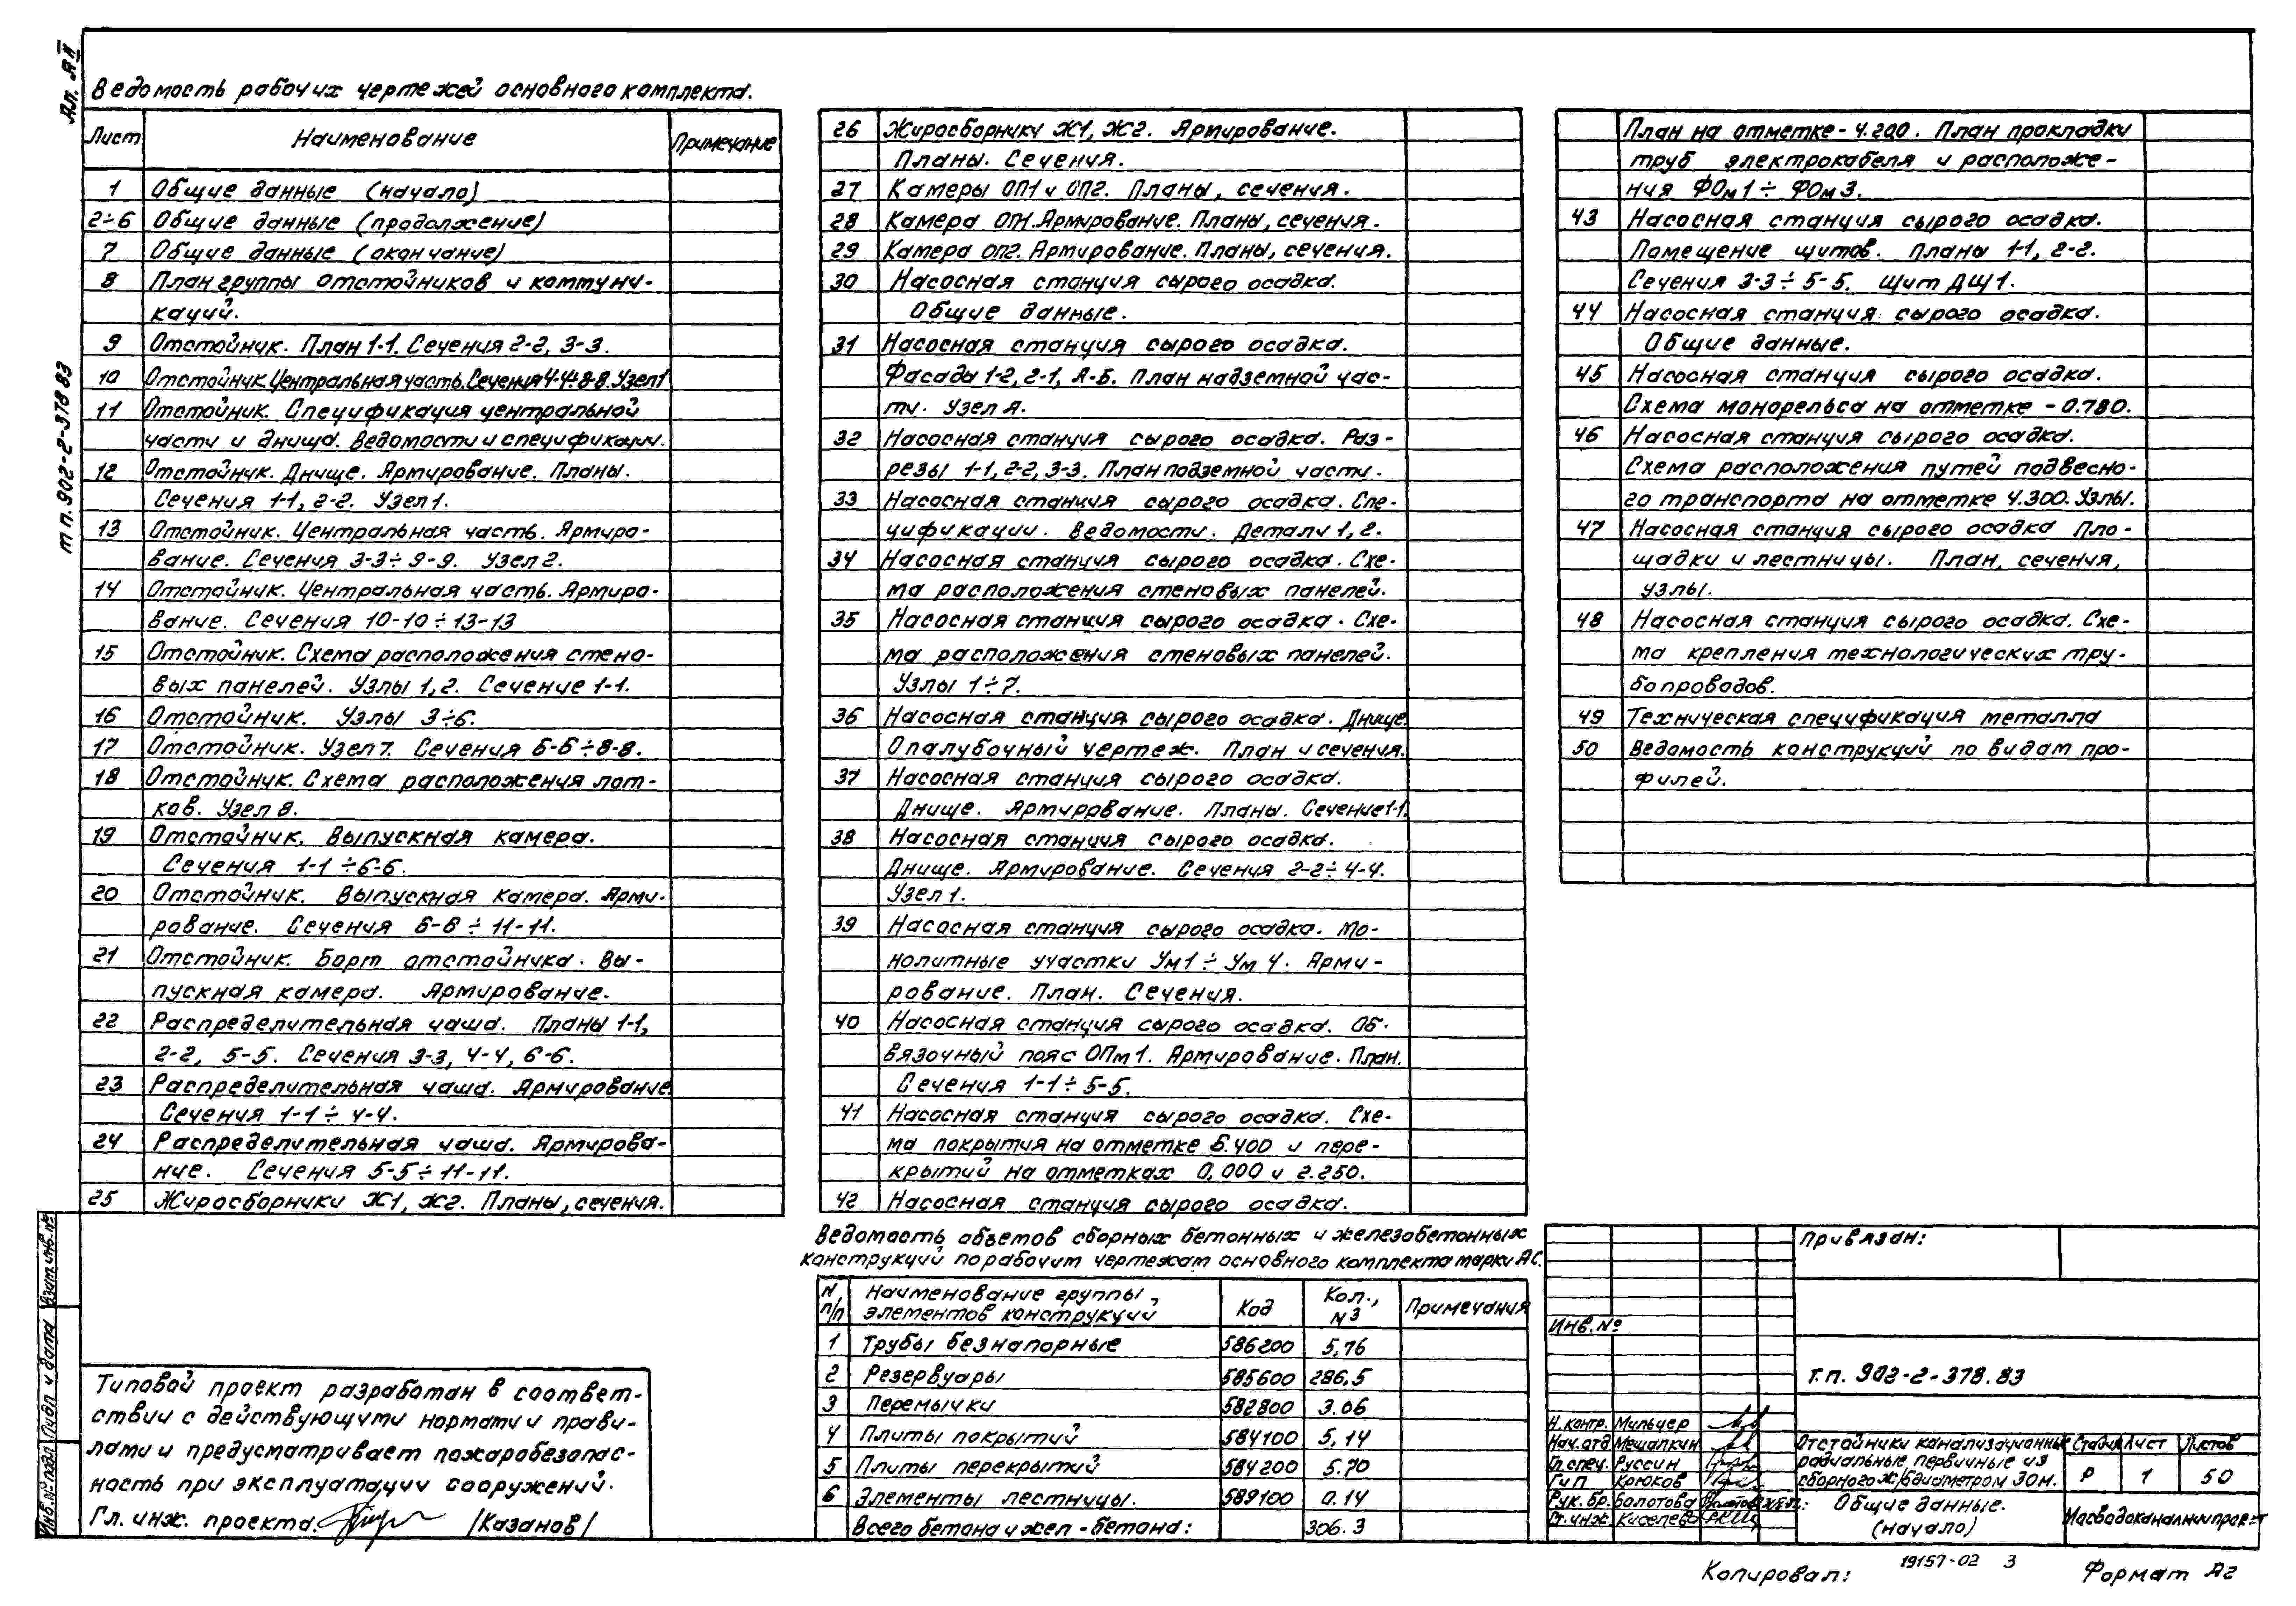 Ал. II
т п. 902-2-378 83
Ведомость рабочих чертежей основного комплекта.
Лист Наименование Примечание
1 Общие данные (начало)
2÷6 Общие данные (продолжение)
7 Общие данные (окончание)
8 План группы отстойников и коммуни-
каций.
9 Отстойник. План 1-1. Сечения 2-2, 3-3.
10 Отстойник. Центральная часть. Сечения 4-4÷8-8. Узел 1
11 Отстойник. Спецификация центральной
части и днища. Ведомости и спецификации.
12 Отстойник. Днище. Армирование. Планы.
Сечения 1-1, 2-2. Узел 1.
13 Отстойник. Центральная часть. Армиро-
вание. Сечения 3-3÷9-9. Узел 2.
14 Отстойник. Центральная часть. Армиро-
вание. Сечения 10-10÷13-13
15 Отстойник. Схема расположения стено-
вых панелей. Узлы 1, 2. Сечение 1-1.
16 Отстойник. Узлы 3÷6.
17 Отстойник. Узел 7. Сечения 6-6÷8-8.
18 Отстойник. Схема расположения лот-
ков. Узел 8.
19 Отстойник. Выпускная камера.
Сечения 1-1÷6-6.
20 Отстойник. Выпускная камера. Арми-
рование. Сечения 6-6÷11-11.
21 Отстойник. Борт отстойника. Вы-
пускная камера. Армирование.
22 Распределительная чаша. Планы 1-1,
2-2, 5-5. Сечения 3-3, 4-4, 6-6.
23 Распределительная чаша. Армирование.
Сечения 1-1÷4-4.
24 Распределительная чаша. Армирова-
ние. Сечения 5-5÷11-11.
25 Жиросборники Ж1, Ж2. Планы, сечения.
26 Жиросборники Ж1, Ж2. Армирование.
Планы. Сечения.
27 Камеры ОП1 и ОП2. Планы, сечения.
28 Камера ОП1. Армирование. Планы, сечения.
29 Камера ОП2. Армирование. Планы, сечения.
30 Насосная станция сырого осадка.
Общие данные.
31 Насосная станция сырого осадка.
Фасады 1-2, 2-1, А-Б. План надземной час-
ти. Узел А.
32 Насосная станция сырого осадка. Раз-
резы 1-1, 2-2, 3-3. План подземной части.
33 Насосная станция сырого осадка. Спе-
цификации. Ведомости. Детали 1, 2.
34 Насосная станция сырого осадка. Схе-
ма расположения стеновых панелей.
35 Насосная станция сырого осадка. Схе-
ма расположения стеновых панелей.
Узлы 1÷7.
36 Насосная станция сырого осадка. Днище.
Опалубочный чертеж. План и сечения.
37 Насосная станция сырого осадка.
Днище. Армирование. Планы. Сечение 1-1.
38 Насосная станция сырого осадка.
Днище. Армирование. Сечения 2-2÷4-4.
Узел 1.
39 Насосная станция сырого осадка. Мо-
нолитные участки Ум1÷Ум 4. Арми-
рование. План. Сечения.
40 Насосная станция сырого осадка. Об-
вязочный пояс ОПм1. Армирование. План.
Сечения 1-1÷5-5.
41 Насосная станция сырого осадка. Схе-
ма покрытия на отметке 6.400 и пере-
крытий на отметках 0,000 и 2.250.
42 Насосная станция сырого осадка.
План на отметке - 4.200. План прокладки
труб электрокабеля и расположе-
ния ФОм1÷ФОм3.
43 Насосная станция сырого осадка.
Помещение щитов. Планы 1-1, 2-2.
Сечения 3-3÷5-5. Щит ДЩ1.
44 Насосная станция сырого осадка.
Общие данные.
45 Насосная станция сырого осадка.
Схема монорельса на отметке -0.780.
46 Насосная станция сырого осадка.
Схема расположения путей подвесно-
го транспорта на отметке 4.300. Узлы.
47 Насосная станция сырого осадка Пло-
щадки и лестницы. План, сечения,
узлы.
48 Насосная станция сырого осадка. Схе-
ма крепления технологических тру-
бопроводов.
49 Техническая спецификация металла
50 Ведомость конструкций по видам про-
филей.
Ведомость объемов сборных бетонных и железобетонных
конструкций по рабочим чертежам основного комплекта марки АС.
N п/п Наименование группы элементов конструкций Код Кол., м3 Примечания
1 Трубы безнапорные 586200 5,76
2 Резервуары 585600 286,5
3 Перемычки 582800 3.06
4 Плиты покрытий 584100 5,14
5 Плиты перекрытий 584200 5.70
6 Элементы лестницы. 589100 0.14
Всего бетона и жел-бетона: 306.3
Типовой проект разработан в соответ-
ствии с действующими нормами и прави-
лами и предусматривает пожаробезопас-
ность при эксплуатации сооружений.
Гл. инж. проекта: /Казанов/
Взам. инв. №
Подп. и дата
Инв. № подл
Привязан:
Инв. №
т.п. 902-2-378.83
Н. контр. Мильнер
Нач. отд Мешалкин
Гл. спец. Руссин
ГИП Крюков
Рук. бр. Болотова
Ст. инж. Киселева
Отстойники канализационные
радиальные первичные из
сборного ж/б диаметром 30м.
Стадия Лист Листов
Р 1 50
Общие данные.
(начало)
Мосводоканалниипроект
Копировал: 19157-02 3 Формат А2